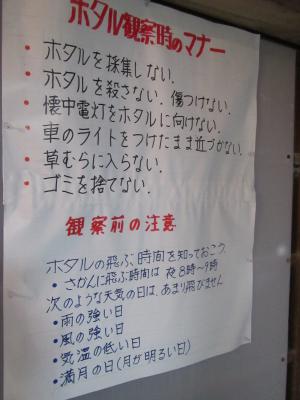 ホタル観察時のマナー
・ホタルを採集しない.
・ホタルを殺さない.傷つけない.
・懐中電灯をホタルに向けない.
・車のライトをつけたまま近づかない.
・草むらに入らない.
・ゴミを捨てない.
観察前の注意
ホタルの飛ぶ時間を知っておこう.
・さかんに飛ぶ時間は 夜8時~9時
次のような天気の日は、あまり飛びません
・雨の強い日
・風の強い日
・気温の低い日
・満月の日(月が明るい日)